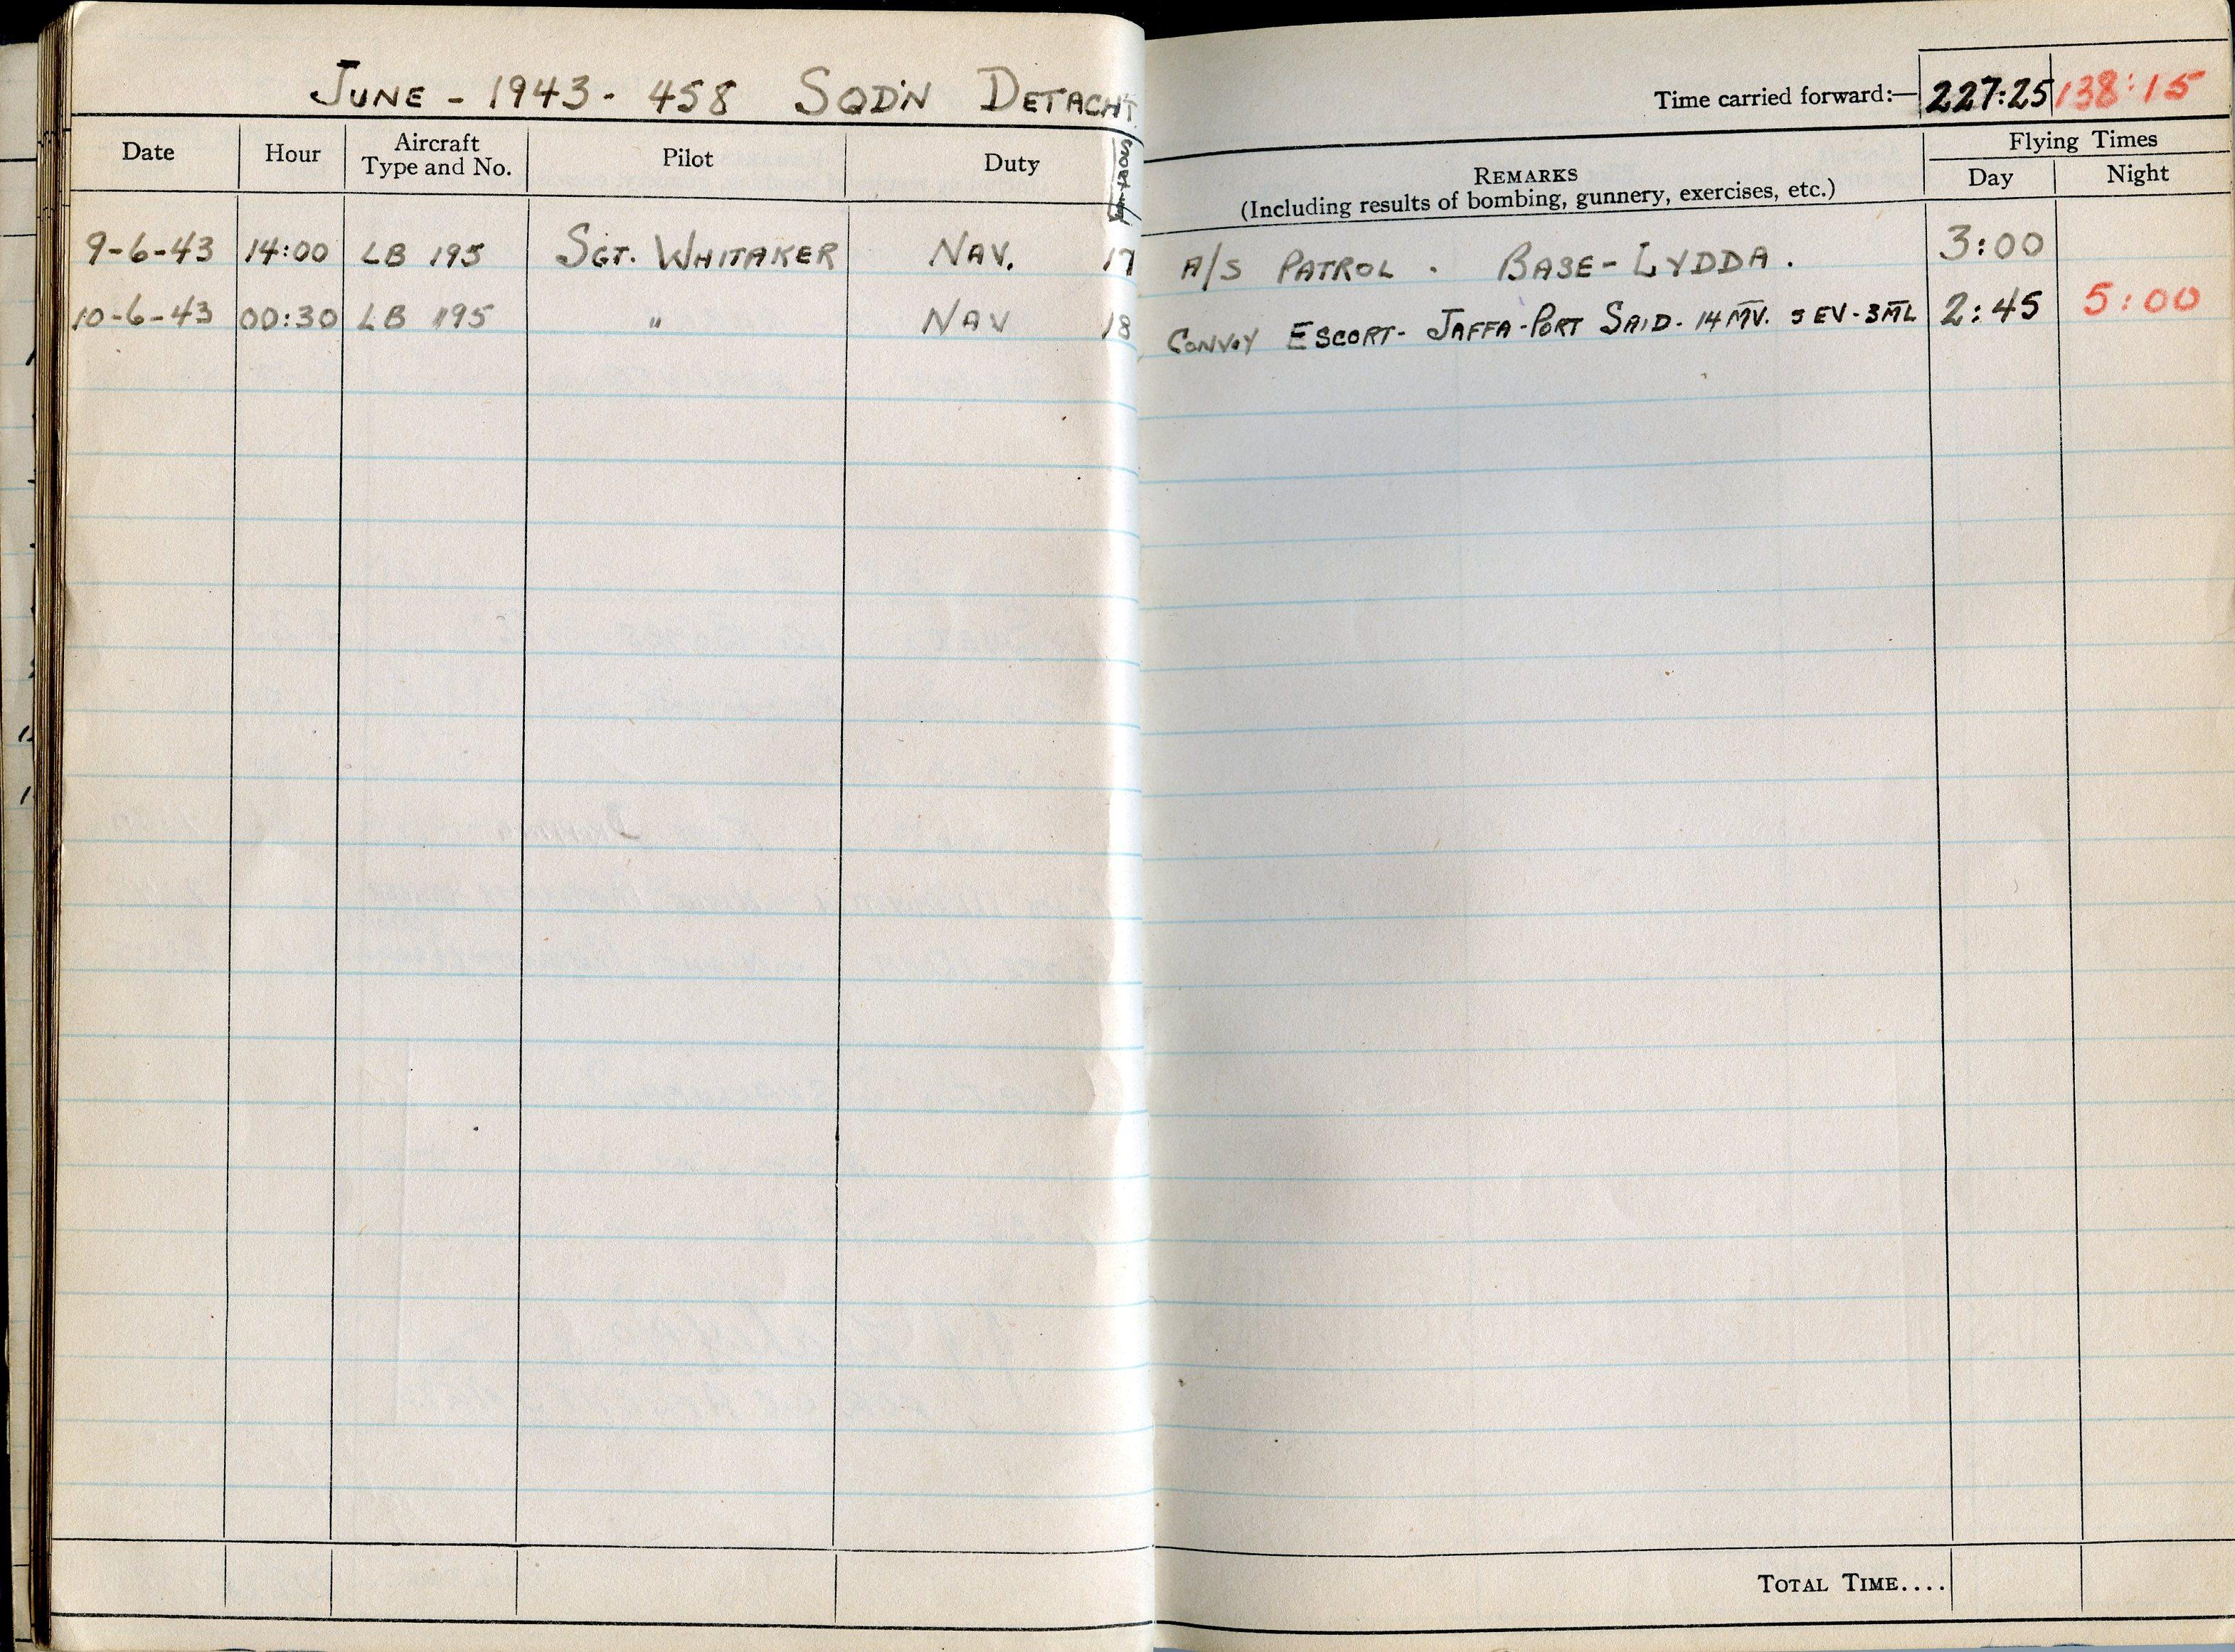 JUNE - 1943 - 458 SQD'N DETACHT
Time carried forward:— 227:25 138:15
Date Hour Aircraft Type and No. Pilot Duty
REMARKS (Including results of bombing, gunnery, exercises, etc.)
Flying Times
Day Night
9-6-43 14:00 LB 195 SGT. WHITAKER NAV. 17 A/S PATROL . BASE - LYDDA . 3:00
10-6-43 00:30 LB 195 " NAV 18 CONVOY ESCORT - JAFFA - PORT SAID - 14 MV. 5 EV - 3 ML 2:45 5:00
TOTAL TIME....